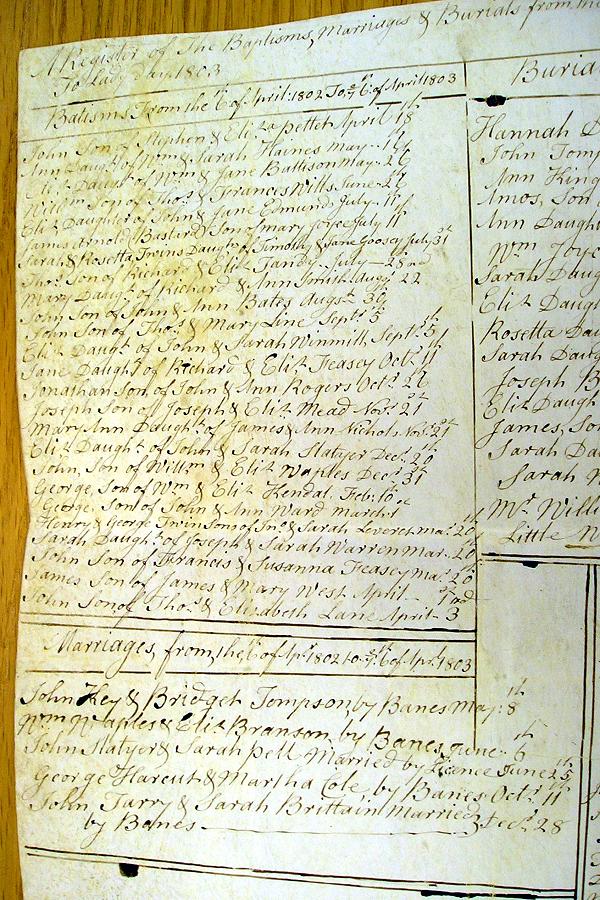 A Register of The Baptisms, Marriages & Burials from
To Lady Day 1803
Batisms From the 6 of April: 1802 To 6: of April 1803
John Son of Stephen & Eliza pettet April 18
Ann Daught of Wm & Sarah Haines May 16
Eliz Daught of Wm & Jane Battison May 26
Willm Son of Thos & Frances Witts June 26
Eliz Daughter of John & Jane Edmund July 11
James Arnold (Bastard) Son of Mary Joyce July 11
Sarah & Rosetta Twins Daugh of Timothy & Jane Goosey July 31st
Thos Son of Richard & Eliz Tandy July 28
Mary Daught of Richard & Ann Smith Augst 22nd
John Son of John & Ann Bates Augst 30
John Son of Thos & Mary Line Septr 5
Eliz Daught of John & Sarah Winmith Septr 5th
Jane Daught of Richard & Eliz Feasey Octr 11
Jonathan Son of John & Ann Rogers Octr 26
Joseph Son of Joseph & Eliz Mead Novr 21
Mary Ann Daught of James & Ann Nichols Novr 21
Eliz Daught of John & Sarah Slatyer Decr 20
John, Son of Willm & Eliz Waples Decr 31
George, Son of Wm & Eliz Kendal Feb: 10th
George, Son of John & Ann Ward March 1st
Henry & George Twin Sons of Jno & Sarah Leveret Mar: 20
Sarah Daught of Joseph & Sarah Warren Mar. 20
John Son of Francis & Susanna Feasey Mar: 20
James Son of James & Mary West April 1st
John Son of Thos & Elizabeth Lane April 3
Marriages, from, the, 6 of Apr 1802 to 6 of Apr. 1803
John Key & Bridget Tompson, by Banes May: 8th
Wm Waples & Eliz Branson, by Banes, June 6th
John Slatyer & Sarah pell Married by Licence June 25
George Harcut & Martha Cole, by Banes Octr 11th
John, Tarry & Sarah Brittain Married Decr 28
by Banes
Buria
Hannah D
John Tomp
Ann King
Amos, Son
Ann Daught
Wm Joyc
Sarah Daug
Eliz Daugh
Rosetta Dau
Sarah Daug
Joseph B
Eliz Daugh
James, So
Sarah Da
Sarah
Mr Willi
Little